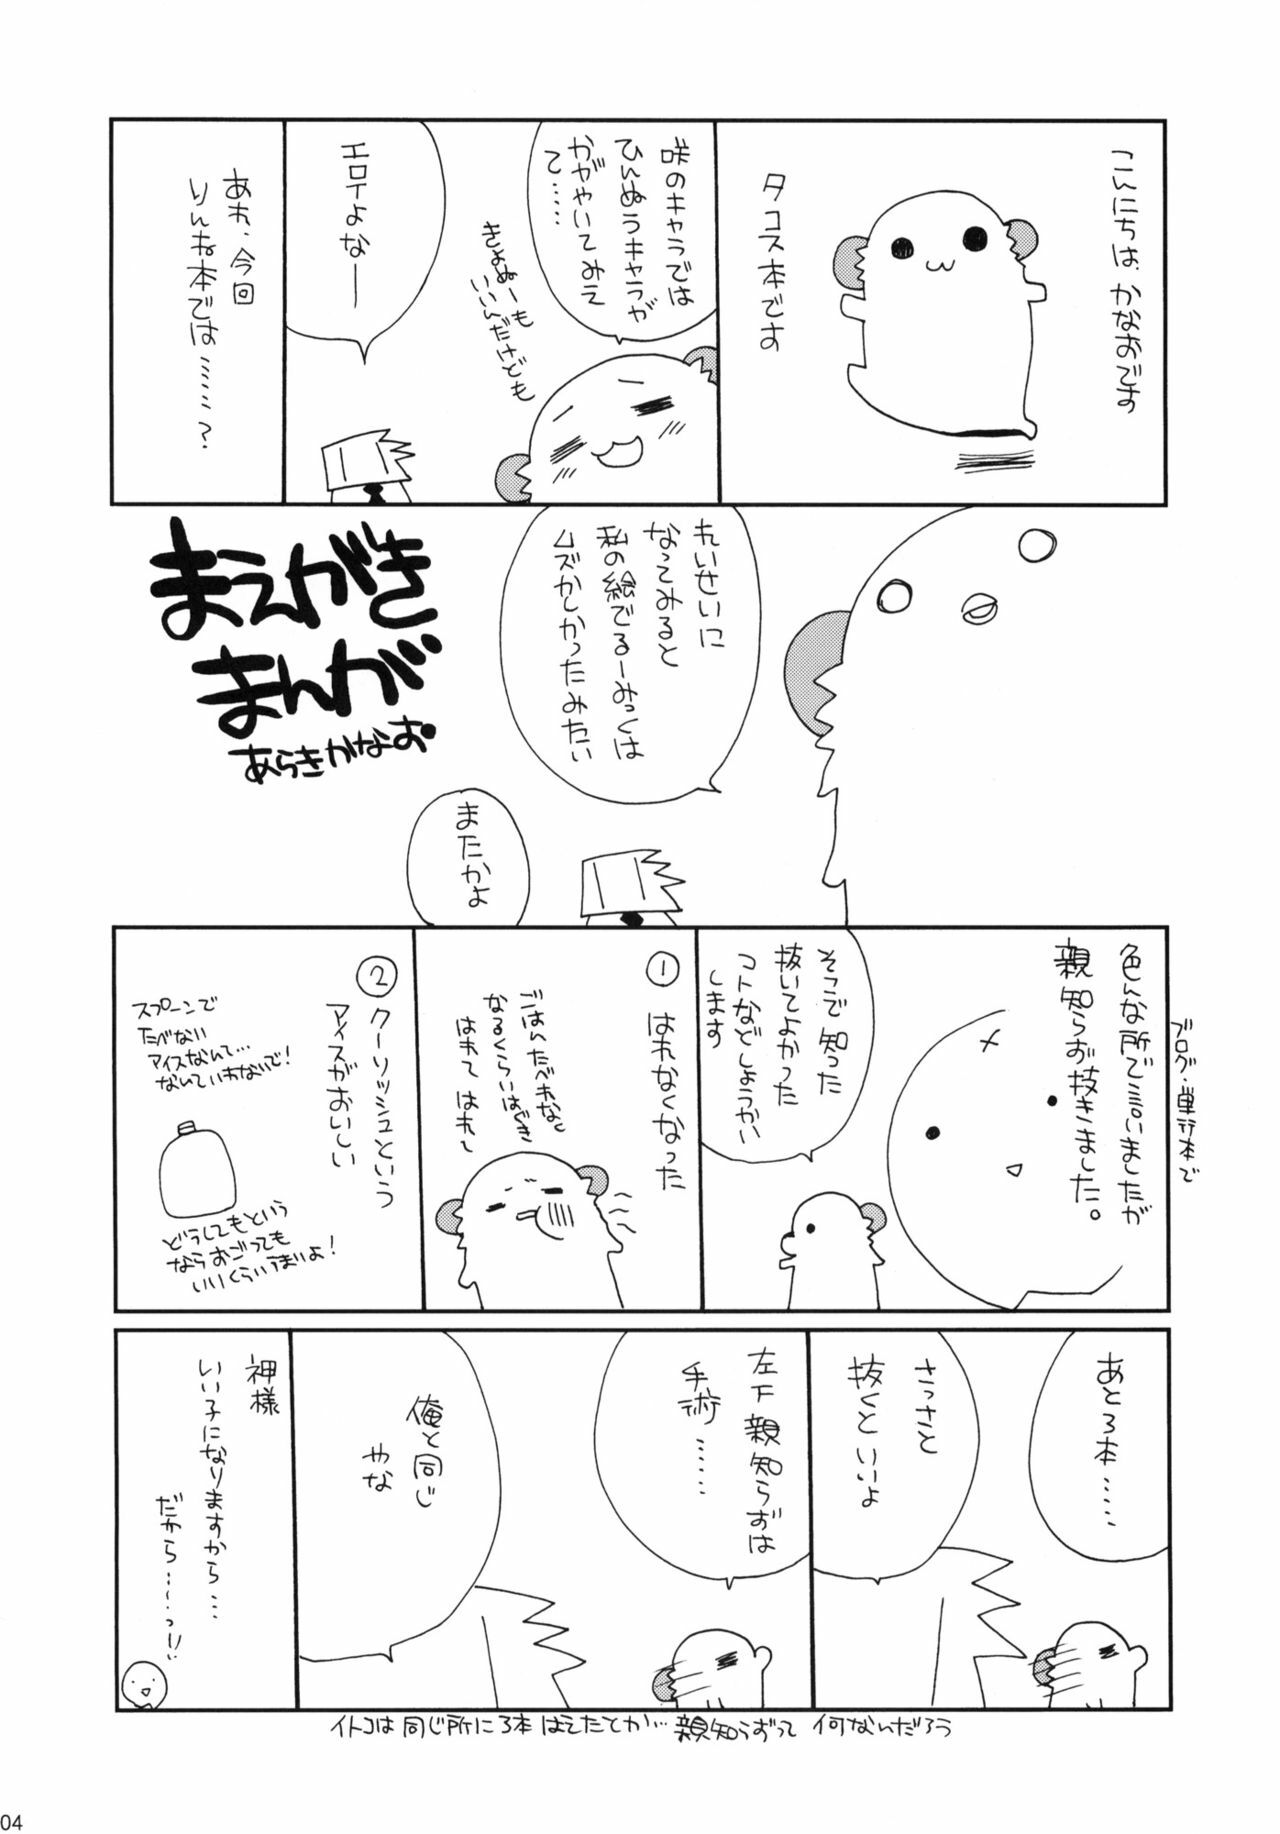 こんにちは、かなおです
タコス本です
咲のキャラでは
ひんぬうキャラが
かがやいてみえ
て……
きょぬーも
いいんだけども
エロイよな──
あれ、今回
りんね本では……？
れいせいに
なってみると
私の絵でるーみっくは
ムズかしかったみたい
まえがき
まんが
あらきかなお
またかよ
ブログ・単行本で
色んな所で言いましたが
親知らず抜きました。
そこで知った
抜いてよかった
コトなどしょうかい
します
① はれなくなった
ごはんたべれなく
なるくらいはぐき
はれて はれて
② クーリッシュという
アイスがおいしい
スプーンで
たべない
アイスなんて…
なんていわないで!
どうしてもという
ならおごっても
いいくらいうまいよ!
あと3本……
さっさと
抜くといいよ
左下親知らずは
手術……
俺と同じ
やな
神様
いい子になりますから…
だから……っ!!
イトコは同じ所に3本はえたとか…親知らずって何なんだろう
04